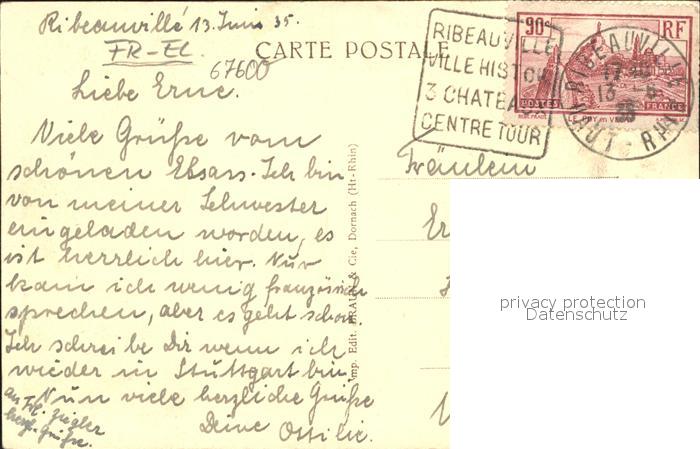 Ribeauvillé 13. Juni 35.
FR-EL
67600
CARTE POSTALE
RIBEAUVILLE
VILLE HISTO
3 CHATEAUX
CENTRE TOUR
90c RF
POSTES FRANCE
RIBEAUVILLE
13 - 6
35
HT - RHIN
Liebe Erne.
Viele Grüße vom
schönen Elsass. Ich bin
von meiner Schwester
eingeladen worden, es
ist herrlich hier. Nur
kann ich wenig französisch
sprechen, aber es geht schon.
Ich schreibe Dir wenn ich
wieder in Stuttgart bin.
Nun viele herzliche Grüße
Deine Ottilie.
an Frl. Ziegler
herzl. Grüße.
Imp. Edit. BRAUN & Cie, Dornach (Ht-Rhin)
Fräulein
Er
privacy protection
Datenschutz